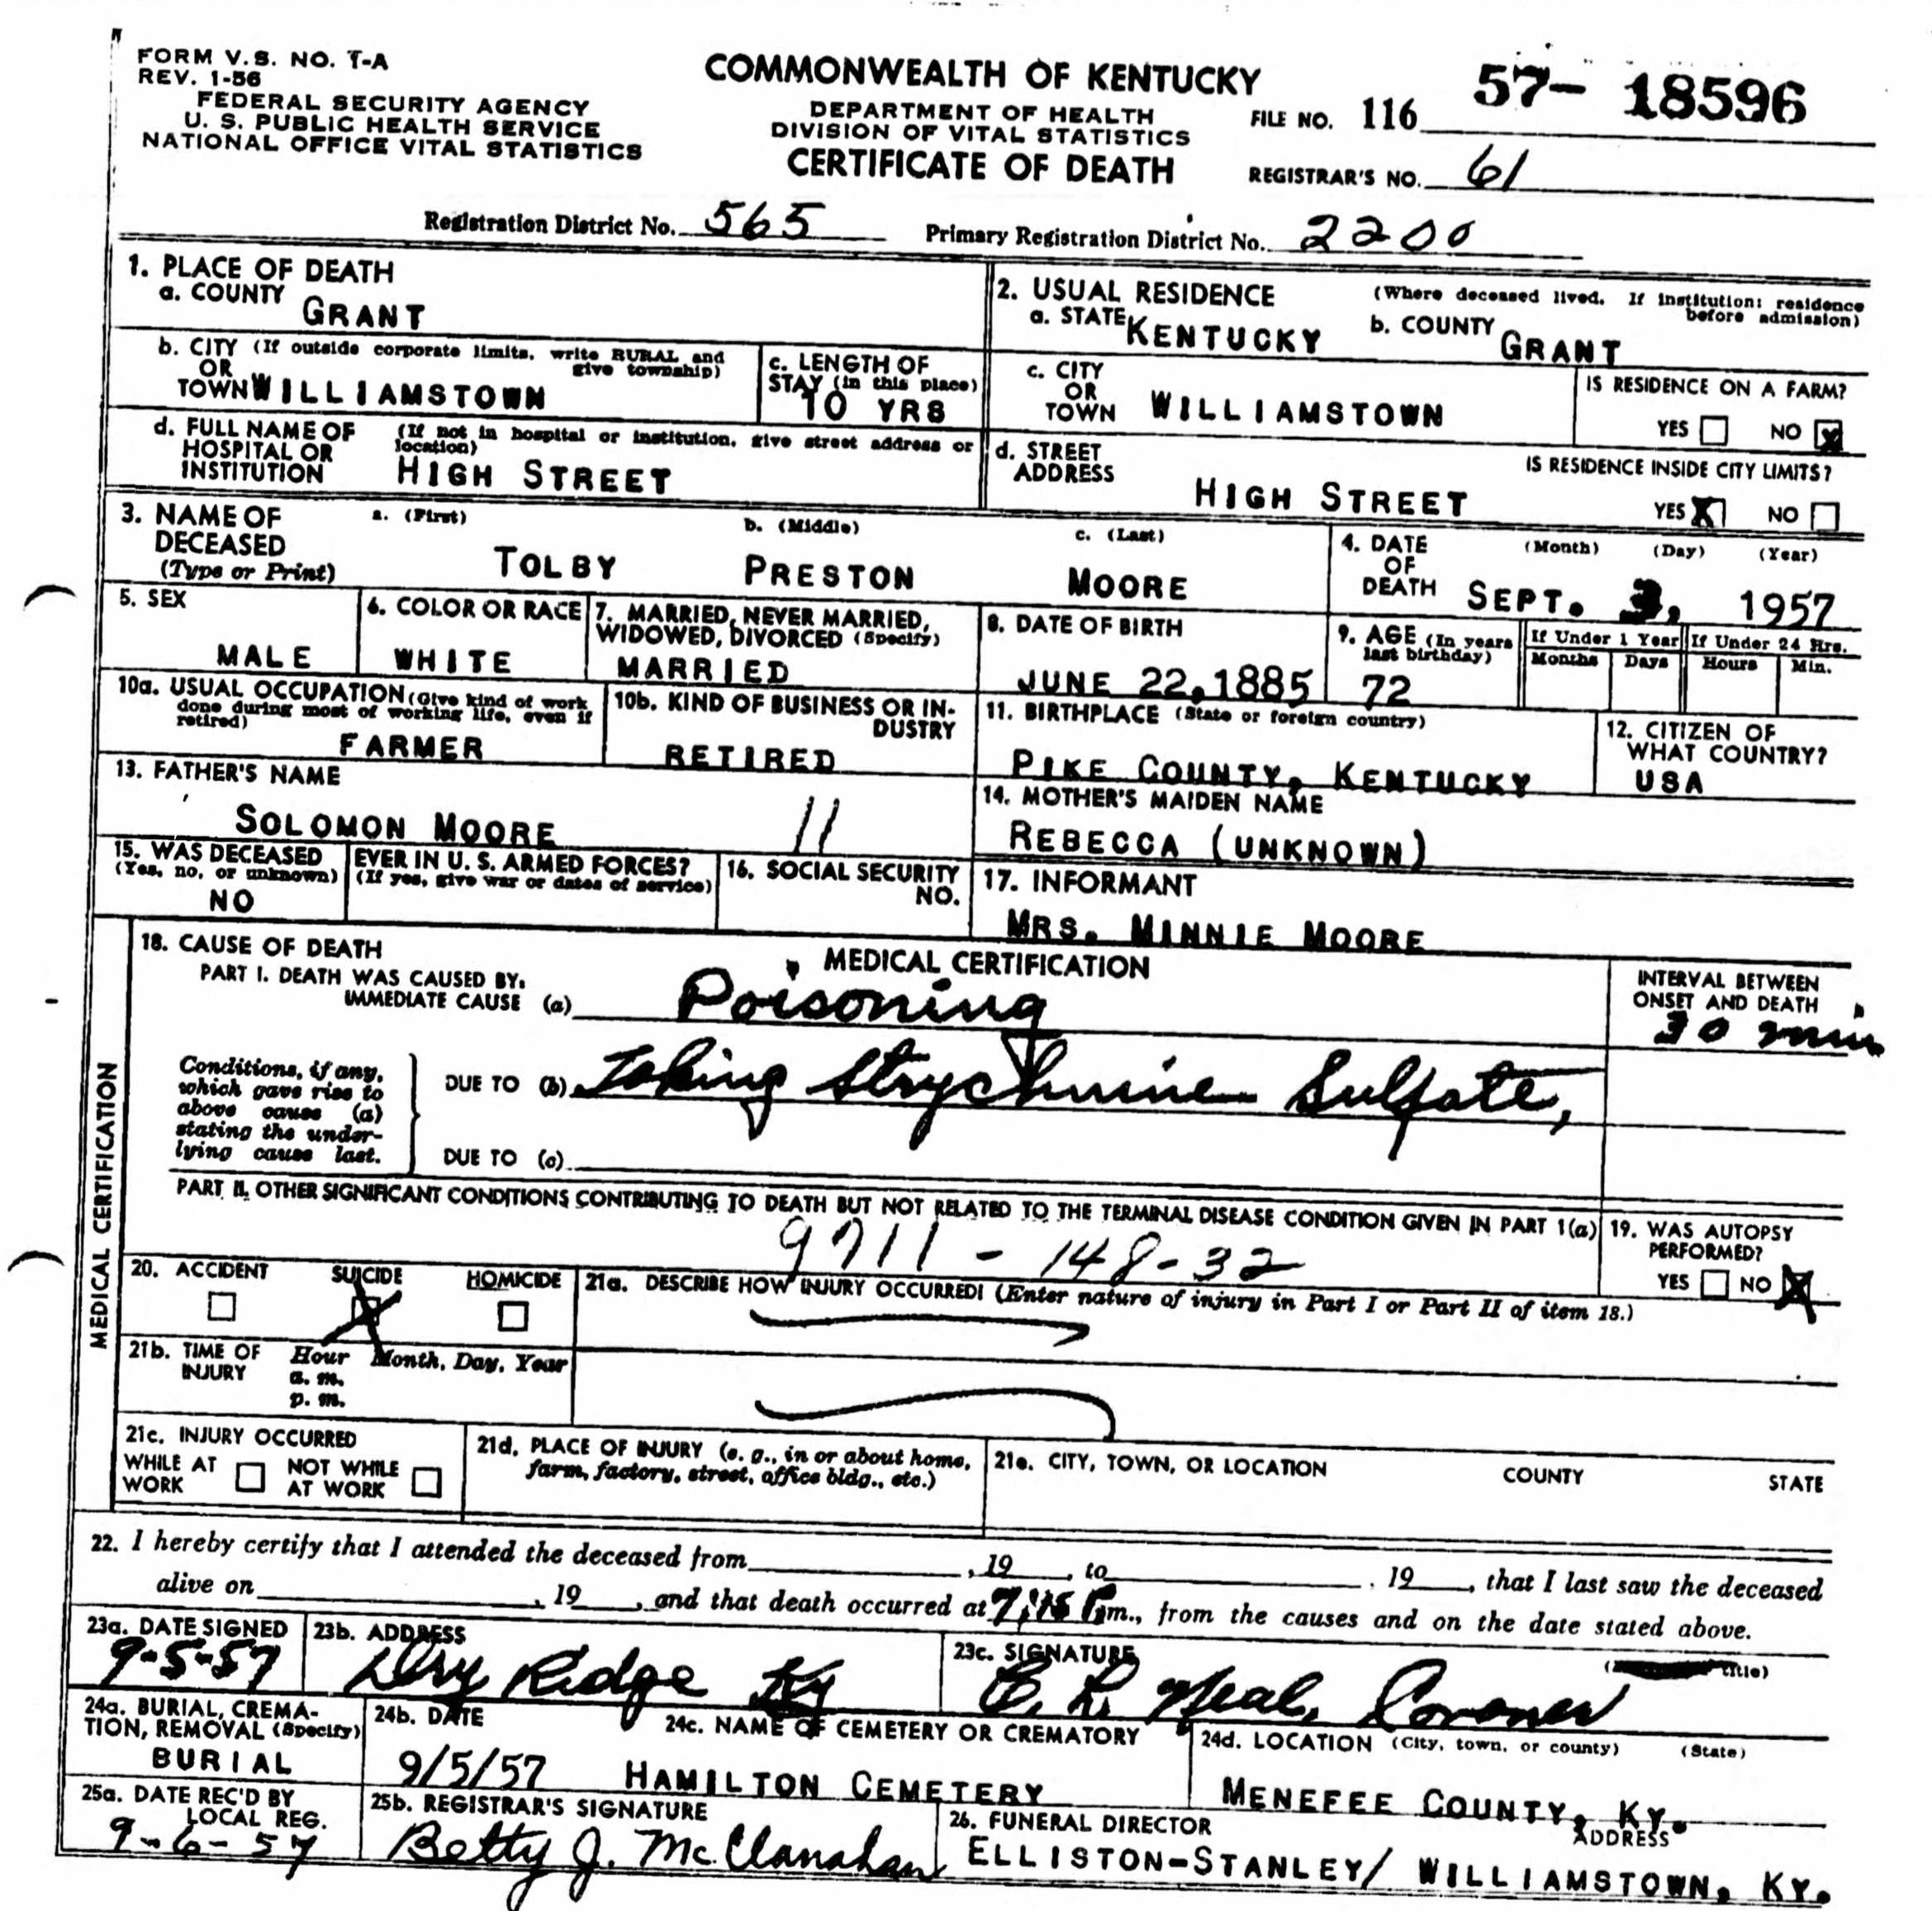 FORM V.S. NO. 1-A
REV. 1-56
FEDERAL SECURITY AGENCY
U. S. PUBLIC HEALTH SERVICE
NATIONAL OFFICE VITAL STATISTICS
COMMONWEALTH OF KENTUCKY
DEPARTMENT OF HEALTH
DIVISION OF VITAL STATISTICS
CERTIFICATE OF DEATH
FILE NO. 116 57- 18596
REGISTRAR'S NO. 61
Registration District No. 565 Primary Registration District No. 2200
1. PLACE OF DEATH
a. COUNTY GRANT
2. USUAL RESIDENCE (Where deceased lived. If institution: residence before admission)
a. STATE KENTUCKY b. COUNTY GRANT
b. CITY (If outside corporate limits, write RURAL and give township)
OR
TOWN WILLIAMSTOWN
c. LENGTH OF STAY (in this place)
10 YRS
c. CITY
OR
TOWN WILLIAMSTOWN
IS RESIDENCE ON A FARM?
YES NO X
d. FULL NAME OF HOSPITAL OR INSTITUTION (If not in hospital or institution, give street address or location)
HIGH STREET
d. STREET ADDRESS
HIGH STREET
IS RESIDENCE INSIDE CITY LIMITS?
YES X NO
3. NAME OF DECEASED (Type or Print)
a. (First) b. (Middle) c. (Last)
TOLBY PRESTON MOORE
4. DATE OF DEATH (Month) (Day) (Year)
SEPT. 3, 1957
5. SEX
MALE
6. COLOR OR RACE
WHITE
7. MARRIED, NEVER MARRIED, WIDOWED, DIVORCED (Specify)
MARRIED
8. DATE OF BIRTH
JUNE 22, 1885
9. AGE (In years last birthday)
72
If Under 1 Year If Under 24 Hrs.
Months Days Hours Min.
10a. USUAL OCCUPATION (Give kind of work done during most of working life, even if retired)
FARMER
10b. KIND OF BUSINESS OR INDUSTRY
RETIRED
11. BIRTHPLACE (State or foreign country)
PIKE COUNTY, KENTUCKY
12. CITIZEN OF WHAT COUNTRY?
USA
13. FATHER'S NAME
SOLOMON MOORE 11
14. MOTHER'S MAIDEN NAME
REBECCA (UNKNOWN)
15. WAS DECEASED EVER IN U. S. ARMED FORCES?
(Yes, no, or unknown) (If yes, give war or dates of service)
NO
16. SOCIAL SECURITY NO.
17. INFORMANT
MRS. MINNIE MOORE
MEDICAL CERTIFICATION
18. CAUSE OF DEATH
MEDICAL CERTIFICATION
PART I. DEATH WAS CAUSED BY:
IMMEDIATE CAUSE (a) Poisoning
INTERVAL BETWEEN ONSET AND DEATH
30 min
Conditions, if any, which gave rise to above cause (a) stating the underlying cause last.
DUE TO (b) Taking Strychnine Sulfate,
DUE TO (c)
PART II. OTHER SIGNIFICANT CONDITIONS CONTRIBUTING TO DEATH BUT NOT RELATED TO THE TERMINAL DISEASE CONDITION GIVEN IN PART 1(a)
9711 - 148-32
19. WAS AUTOPSY PERFORMED?
YES NO X
20. ACCIDENT SUICIDE HOMICIDE
X
21a. DESCRIBE HOW INJURY OCCURRED! (Enter nature of injury in Part I or Part II of item 18.)
21b. TIME OF INJURY Hour Month, Day, Year
a. m.
p. m.
21c. INJURY OCCURRED
WHILE AT WORK NOT WHILE AT WORK
21d. PLACE OF INJURY (e. g., in or about home, farm, factory, street, office bldg., etc.)
21e. CITY, TOWN, OR LOCATION COUNTY STATE
22. I hereby certify that I attended the deceased from , 19 , to , 19 , that I last saw the deceased
alive on , 19 , and that death occurred at 7:15 P.m., from the causes and on the date stated above.
23a. DATE SIGNED
9-5-57
23b. ADDRESS
Dry Ridge Ky
23c. SIGNATURE title)
C. L. Neal, Coroner
24a. BURIAL, CREMATION, REMOVAL (Specify)
BURIAL
24b. DATE
9/5/57
24c. NAME OF CEMETERY OR CREMATORY
HAMILTON CEMETERY
24d. LOCATION (City, town, or county) (State)
MENEFEE COUNTY, KY.
25a. DATE REC'D BY LOCAL REG.
9-6-57
25b. REGISTRAR'S SIGNATURE
Betty J. McClanahan
26. FUNERAL DIRECTOR ADDRESS
ELLISTON-STANLEY/ WILLIAMSTOWN, KY.